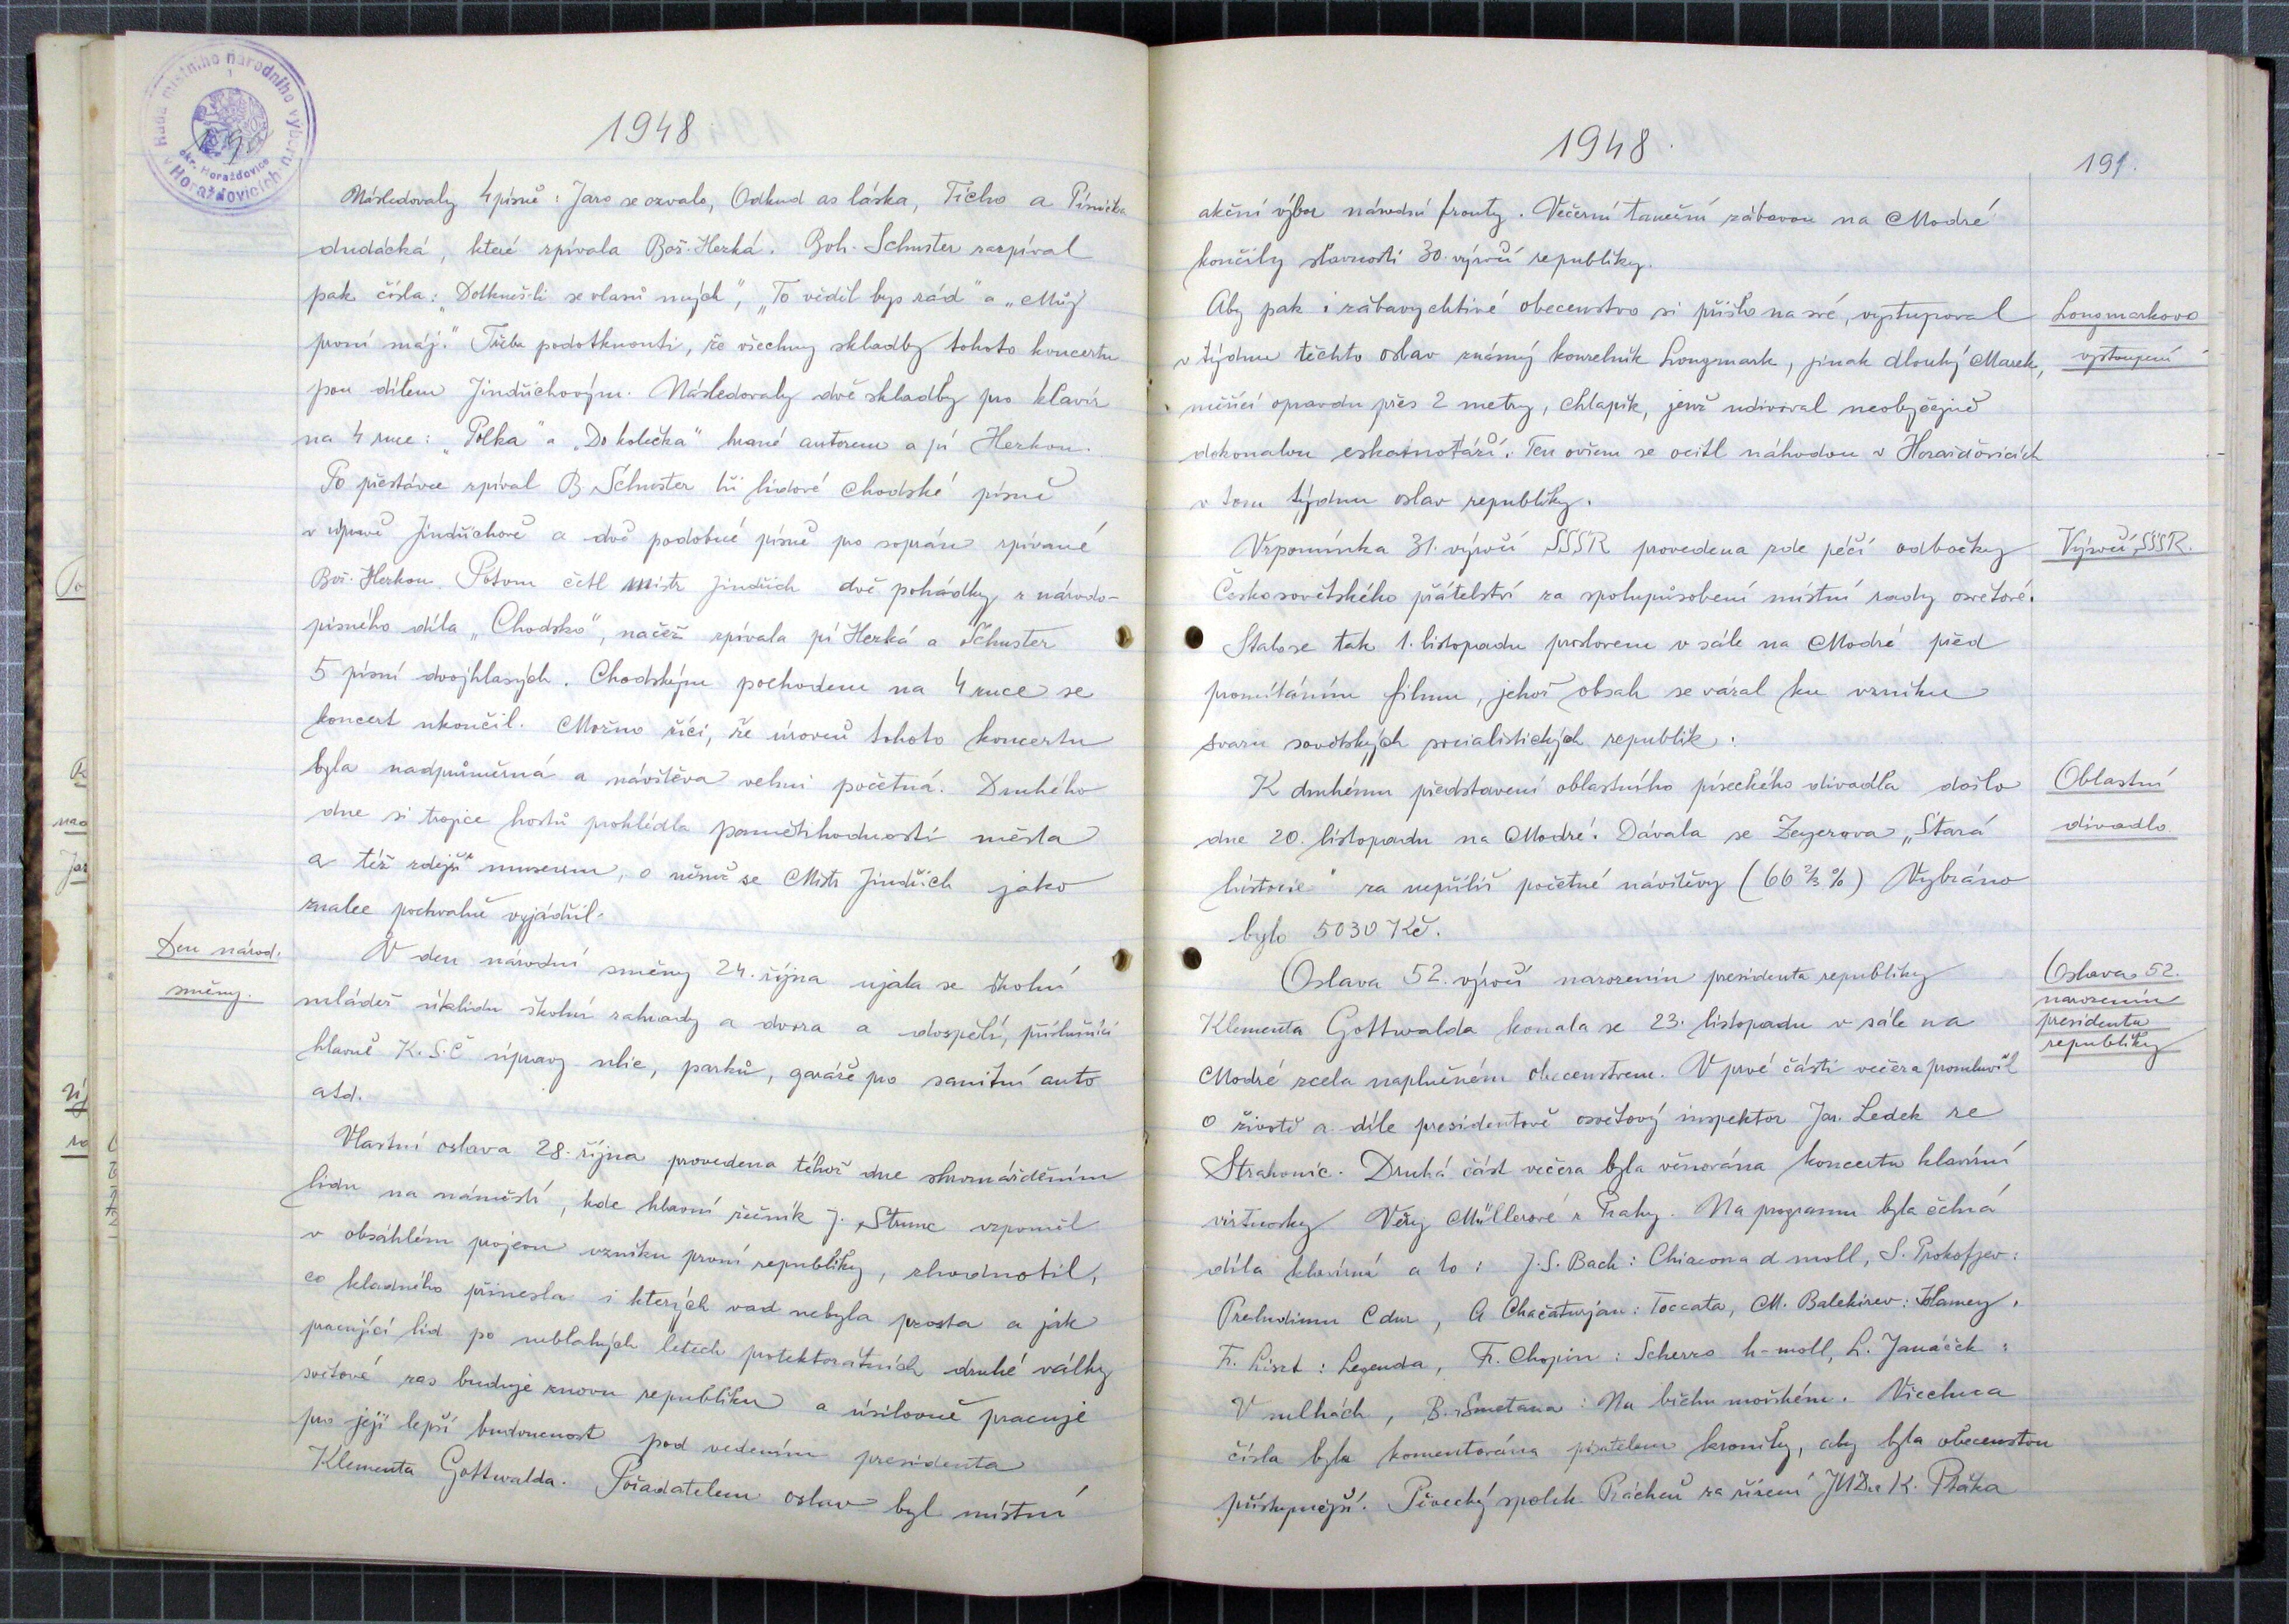 Rada místního národního výboru
v Horažďovicích
okr. Horažďovice
1948
Následovaly 4 písně: Jaro se ozvalo, Odkud as láska, Ticho a Písnička
dudácká, které zpívala Bož. Hezká. Boh. Schuster zazpíval
pak čísla: „Dotkneš-li se vlasů mých", „To věděl bys rád" a „Můj
první máj." Třeba podotknouti, že všechny skladby tohoto koncertu
jsou dílem Jindřichovým. Následovaly dvě skladby pro klavír
na 4 ruce: „Polka" a „Do kolečka" hrané autorem a pí Hezkou.
Po přestávce zpíval B Schuster tři lidové chodské písně
v úpravě Jindřichově a dvě podobné písně pro soprán zpívané
Bož. Hezkou. Potom četl mistr Jindřich dvě pohádky z národo-
pisného díla „Chodsko", načež zpívala pí Hezká a Schuster
5 písní dvojhlasých. Chodským pochodem na 4 ruce se
koncert ukončil. Možno říci, že úroveň tohoto koncertu
byla nadprůměrná a návštěva velmi početná. Druhého
dne si trojice hostů prohlédla pamětihodnosti města
a též zdejší museum, o němž se Mistr Jindřich jako
znalec pochvalně vyjádřil.
Den národ.
směny.
V den národní směny 24. října ujala se školní
mládež úklidu školní zahrady a dvora a dospělí, příslušníci
hlavně K.S.Č úpravy ulic, parků, garáže pro sanitní auto
atd.
Vlastní oslava 28. října provedena téhož dne shromážděním
lidu na náměstí, kde hlavní řečník J. Strunc vzpomněl
v obsáhlém projevu vzniku první republiky, zhodnotil,
co kladného přinesla i kterých vad nebyla prosta a jak
pracující lid po neblahých letech protektorátních druhé války
světové zas buduje znovu republiku a úsilovně pracuje
pro její lepší budoucnost pod vedením presidenta
Klementa Gottwalda. Pořadatelem oslav byl místní
1948.
191.
akční výbor národní fronty. Večerní taneční zábavou na Modré
končily slavnosti 30. výročí republiky.
Aby pak i zábavychtivé obecenstvo si přišlo na své, vystupoval
v týdnu těchto oslav známý kouzelník Longmark, jinak dlouhý Marek,
měřící opravdu přes 2 metry, chlapík, jenž udivoval neobyčejně
dokonalou eskamotáží. Ten ovšem se ocitl náhodou v Horažďovicích
v tom týdnu oslav republiky.
Longmarkovo
vystoupení
Vzpomínka 31. výročí SSSR provedena zde péčí odbočky
Českosovětského přátelství za spolupůsobení místní rady osvětové.
Stalo se tak 1. listopadu proslovem v sále na Modré před
promítáním filmu, jehož obsah se vázal ku vzniku
svazu sovětských socialistických republik.
Výročí SSSR.
K druhému představení oblastního píseckého divadla došlo
dne 20. listopadu na Modré. Dávala se Zeyerova „Stará
historie" za nepříliš početné návštěvy (66⅔%) Vybráno
bylo 5030 Kč.
Oblastní
divadlo.
Oslava 52. výročí narozenin presidenta republiky
Klementa Gottwalda konala se 23. listopadu v sále na
Modré zcela naplněném obecenstvem. V prvé části večera promluvil
o životě a díle presidentově osvětový inspektor Jar. Ledek ze
Strakonic. Druhá část večera byla věnována koncertu klavírní
virtuosky Věry Müllerové z Prahy. Na programu byla četná
díla klavírní a to: J.S. Bach: Chiacona d moll, S. Prokofjev:
Preludium C dur, A Chačaturjan: Toccata, M. Balakirev: Islamey,
Fr. Liszt: Legenda, Fr. Chopin: Scherzo h-moll, L. Janáček:
V mlhách, B. Smetana: Na břehu mořském. Všechna
čísla byla komentována pisatelem kroniky, aby byla obecenstvu
přístupnější. Pěvecký spolek Prácheň za řízení JUDra K. Ptáka
Oslava 52.
narozenin
presidenta
republiky